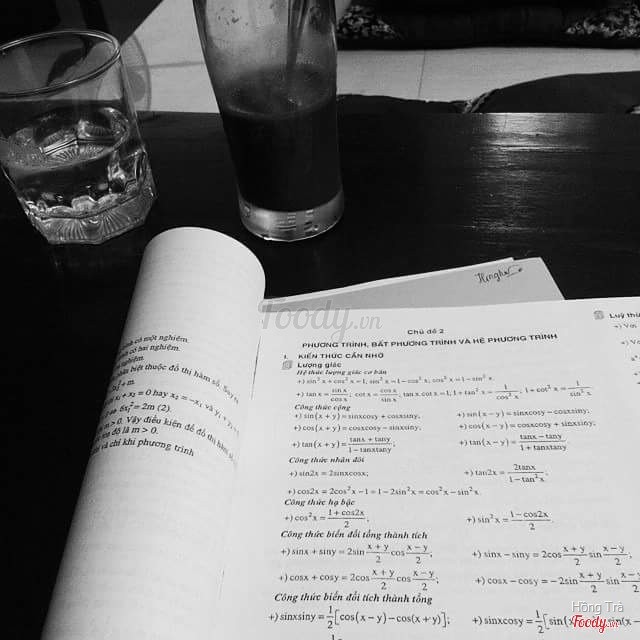 Foody.vn
có một nghiệm.
có hai nghiệm.
nghiệm.
phân biệt thuộc đồ thị hàm số.
+ m.
x₁ + x₂ = 0 hay x₂ = -x₁ và y₁ + y₂
6x₁² = 2m (2).
m > 0. Vậy điều kiện để đồ thị hàm số
toạ độ là m > 0.
và chỉ khi phương trình
Chủ đề 2
PHƯƠNG TRÌNH, BẤT PHƯƠNG TRÌNH VÀ HỆ PHƯƠNG TRÌNH
I. KIẾN THỨC CẦN NHỚ
Lượng giác
Hệ thức lượng giác cơ bản
+) sin²x + cos²x = 1; sin²x = 1 - cos²x; cos²x = 1 - sin²x.
+) tanx = sinx/cosx; cotx = cosx/sinx; tanx.cotx = 1; 1 + tan²x = 1/cos²x; 1 + cot²x = 1/sin²x.
Công thức cộng
+) sin(x + y) = sinxcosy + cosxsiny; +) sin(x - y) = sinxcosy - cosxsiny;
+) cos(x + y) = cosxcosy - sinxsiny; +) cos(x - y) = cosxcosy + sinxsiny;
+) tan(x + y) = tanx + tany/1 - tanxtany; +) tan(x - y) = tanx - tany/1 + tanxtany
Công thức nhân đôi
+) sin2x = 2sinxcosx; +) tan2x = 2tanx/1 - tan²x;
+) cos2x = 2cos²x - 1 = 1 - 2sin²x = cos²x - sin²x.
Công thức hạ bậc
+) cos²x = 1 + cos2x/2; +) sin²x = 1 - cos2x/2.
Công thức biến đổi tổng thành tích
+) sinx + siny = 2sin x + y/2 cos x - y/2; +) sinx - siny = 2cos x + y/2 sin x - y/2
+) cosx + cosy = 2cos x + y/2 cos x - y/2; +) cosx - cosy = -2sin x + y/2 sin x - y/2
Công thức biến đổi tích thành tổng
+) sinxsiny = 1/2[cos(x - y) - cos(x + y)]; +) sinxcosy = 1/2[sin(x
Luỹ thừ
+) Với
Hồng Trà
Foody.vn